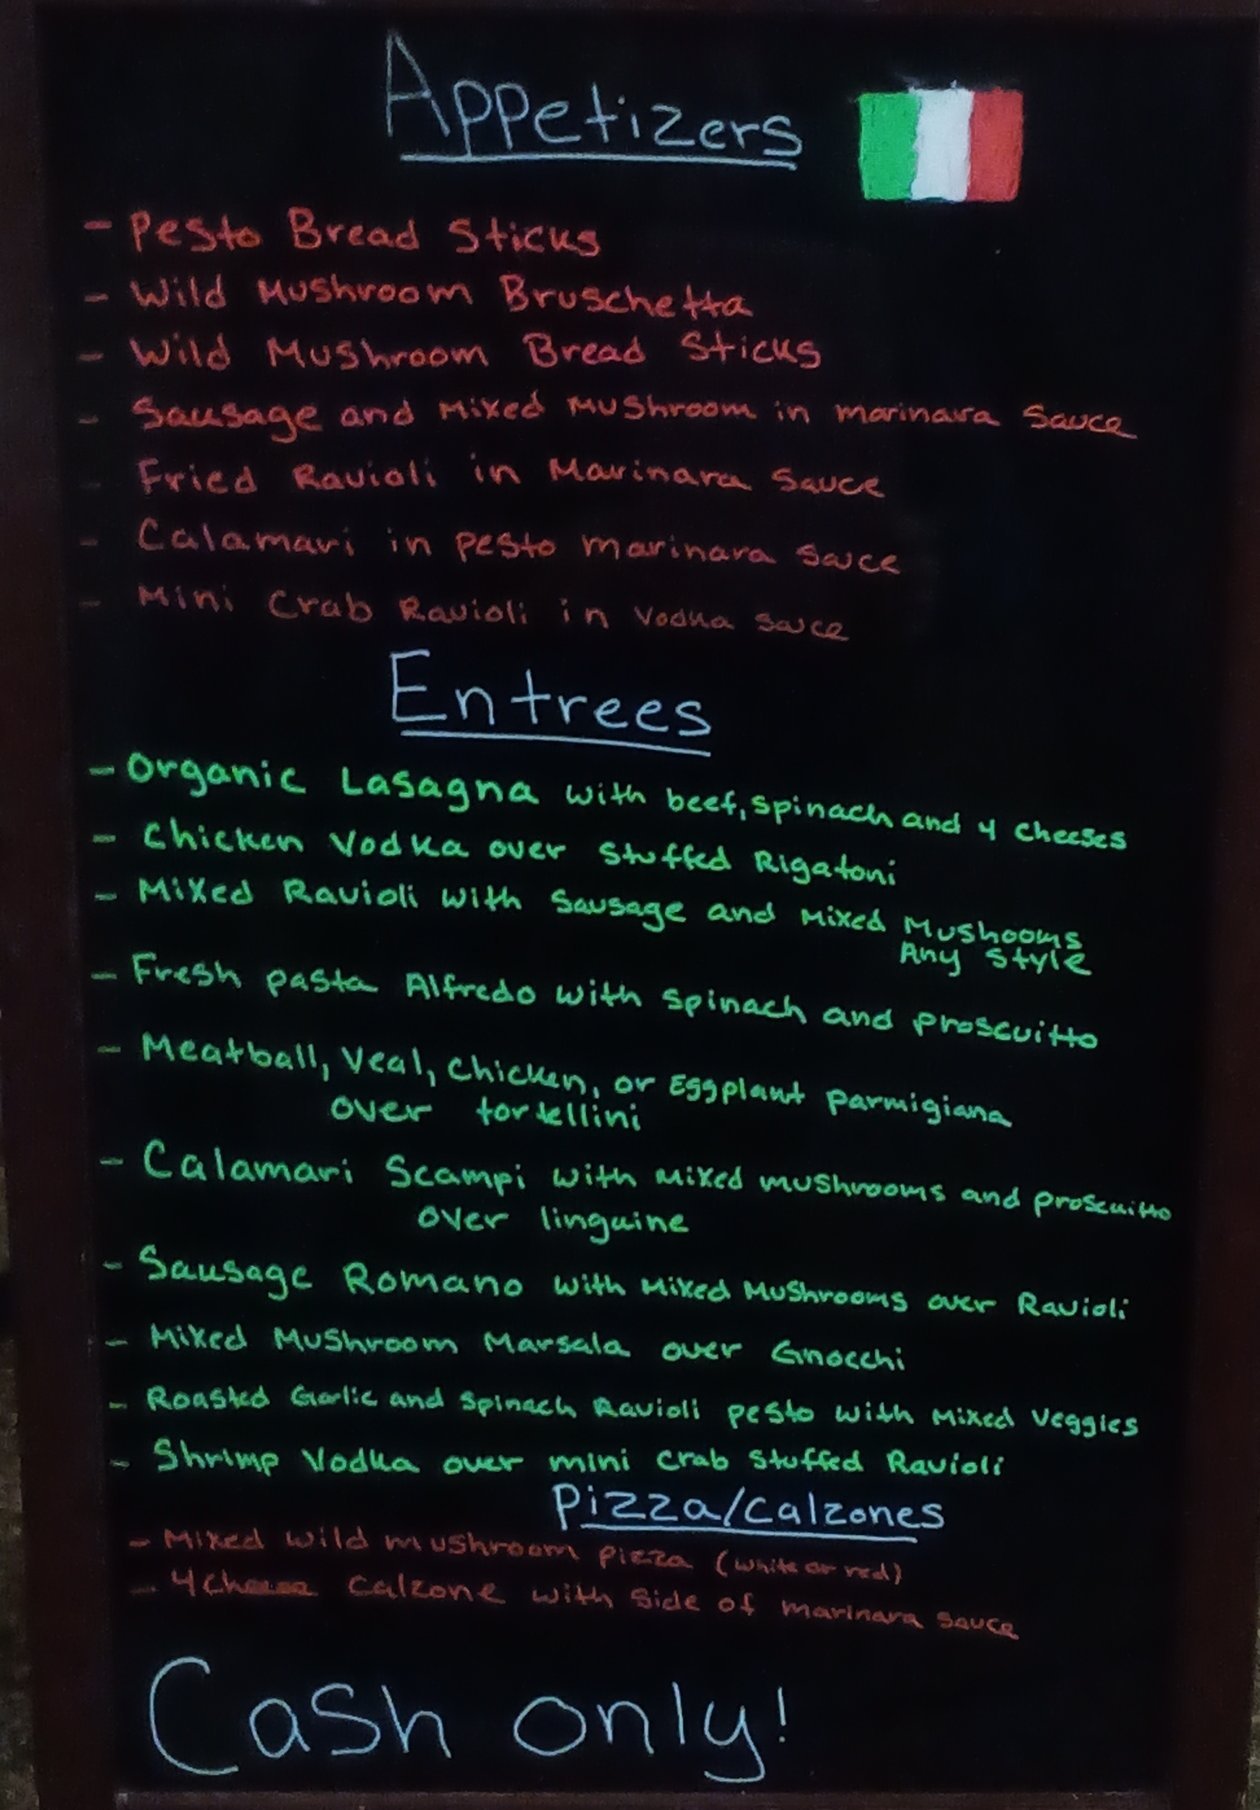 Appetizers
- Pesto Bread Sticks
- Wild Mushroom Bruschetta
- Wild Mushroom Bread Sticks
- Sausage and Mixed Mushroom in marinara Sauce
- Fried Ravioli in Marinara Sauce
- Calamari in pesto marinara sauce
- Mini Crab Ravioli in vodka sauce
Entrees
- Organic Lasagna with beef, spinach and 4 cheeses
- Chicken Vodka over Stuffed Rigatoni
- Mixed Ravioli with Sausage and Mixed Mushooms
Any Style
- Fresh pasta Alfredo with spinach and proscuitto
- Meatball, Veal, Chicken, or Eggplant parmigiana
over tortellini
- Calamari Scampi with Mixed mushrooms and proscuitto
over linguine
- Sausage Romano with Mixed Mushrooms over Ravioli
- Mixed Mushroom Marsala over Gnocchi
- Roasted Garlic and Spinach Ravioli pesto with Mixed Veggies
- Shrimp Vodka over mini Crab Stuffed Ravioli
Pizza/Calzones
- Mixed wild mushroom pizza (white or red)
- 4 Cheese Calzone with side of marinara sauce
Cash only!